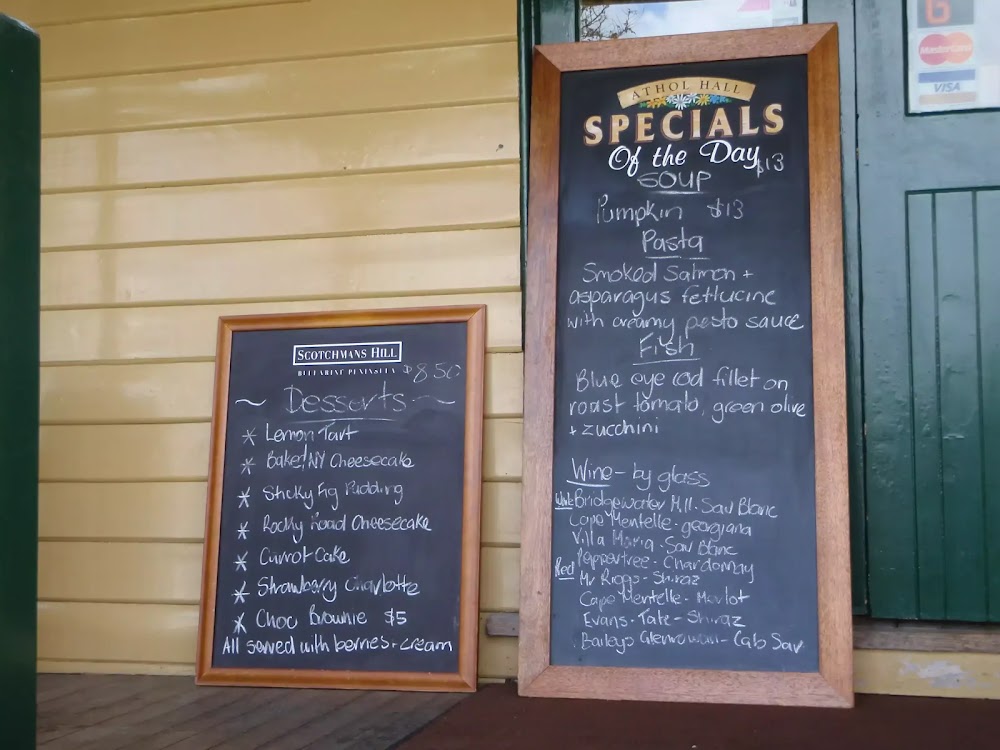 SCOTCHMANS HILL
BELLARINE PENINSULA $8.50
~ Desserts ~
* Lemon Tart
* Baked NY Cheesecake
* Sticky Fig Pudding
* Rocky Road Cheesecake
* Carrot Cake
* Strawberry Charlotte
* Choc Brownie $5
All served with berries + cream
ATHOL HALL
SPECIALS
Of the Day $13
SOUP
Pumpkin $13
Pasta
Smoked Salmon +
asparagus fettucine
with creamy pesto sauce
Fish
Blue eye cod fillet on
roast tomato, green olive
+ zucchini
Wine - by glass
Bridgewater Mill. Sauv Blanc
Cape Mentelle - georgiana
Villa Maria . Sav Blanc
Peppertree - Chardonnay
Red
Mr Riggs - Shiraz
Cape Mentelle - Merlot
Evans - Tate - Shiraz
Baileys Glenrowan - Cab Sav
MasterCard
VISA